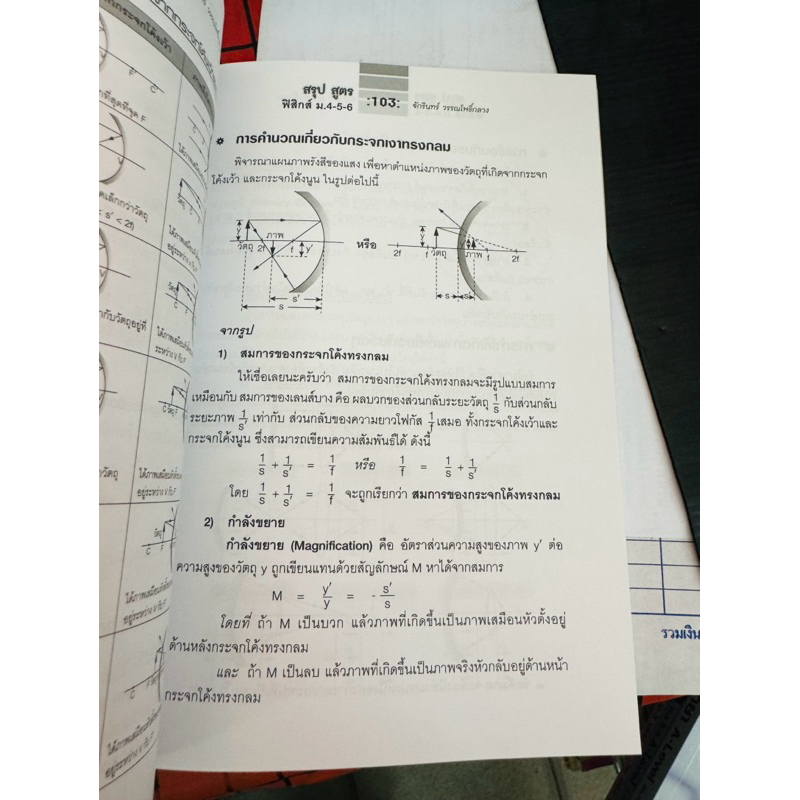 สรุป สูตร
ฟิสิกส์ ม.4-5-6
:103:
จักรินทร์ วรรณโพธิ์กลาง
การคำนวณเกี่ยวกับกระจกเงาทรงกลม
พิจารณาแผนภาพรังสีของแสง เพื่อหาตำแหน่งภาพของวัตถุที่เกิดจากกระจก
โค้งเว้า และกระจกโค้งนูน ในรูปต่อไปนี้
y วัตถุ 2f ภาพ f y′ s′ s
หรือ
2f f y วัตถุ y′ ภาพ f 2f s s′
จากรูป
1) สมการของกระจกโค้งทรงกลม
ให้เชื่อเลยนะครับว่า สมการของกระจกโค้งทรงกลมจะมีรูปแบบสมการ
เหมือนกับ สมการของเลนส์บาง คือ ผลบวกของส่วนกลับระยะวัตถุ 1/s กับส่วนกลับ
ระยะภาพ 1/s′ เท่ากับ ส่วนกลับของความยาวโฟกัส 1/f เสมอ ทั้งกระจกโค้งเว้าและ
กระจกโค้งนูน ซึ่งสามารถเขียนความสัมพันธ์ได้ ดังนี้
1/s + 1/s′ = 1/f หรือ 1/f = 1/s + 1/s′
โดย 1/s + 1/s′ = 1/f จะถูกเรียกว่า สมการของกระจกโค้งทรงกลม
2) กำลังขยาย
กำลังขยาย (Magnification) คือ อัตราส่วนความสูงของภาพ y′ ต่อ
ความสูงของวัตถุ y ถูกเขียนแทนด้วยสัญลักษณ์ M หาได้จากสมการ
M = y′/y = -s′/s
โดยที่ ถ้า M เป็นบวก แล้วภาพที่เกิดขึ้นเป็นภาพเสมือนหัวตั้งอยู่
ด้านหลังกระจกโค้งทรงกลม
และ ถ้า M เป็นลบ แล้วภาพที่เกิดขึ้นเป็นภาพจริงหัวกลับอยู่ด้านหน้า
กระจกโค้งทรงกลม
รวมเงิน
A-Level